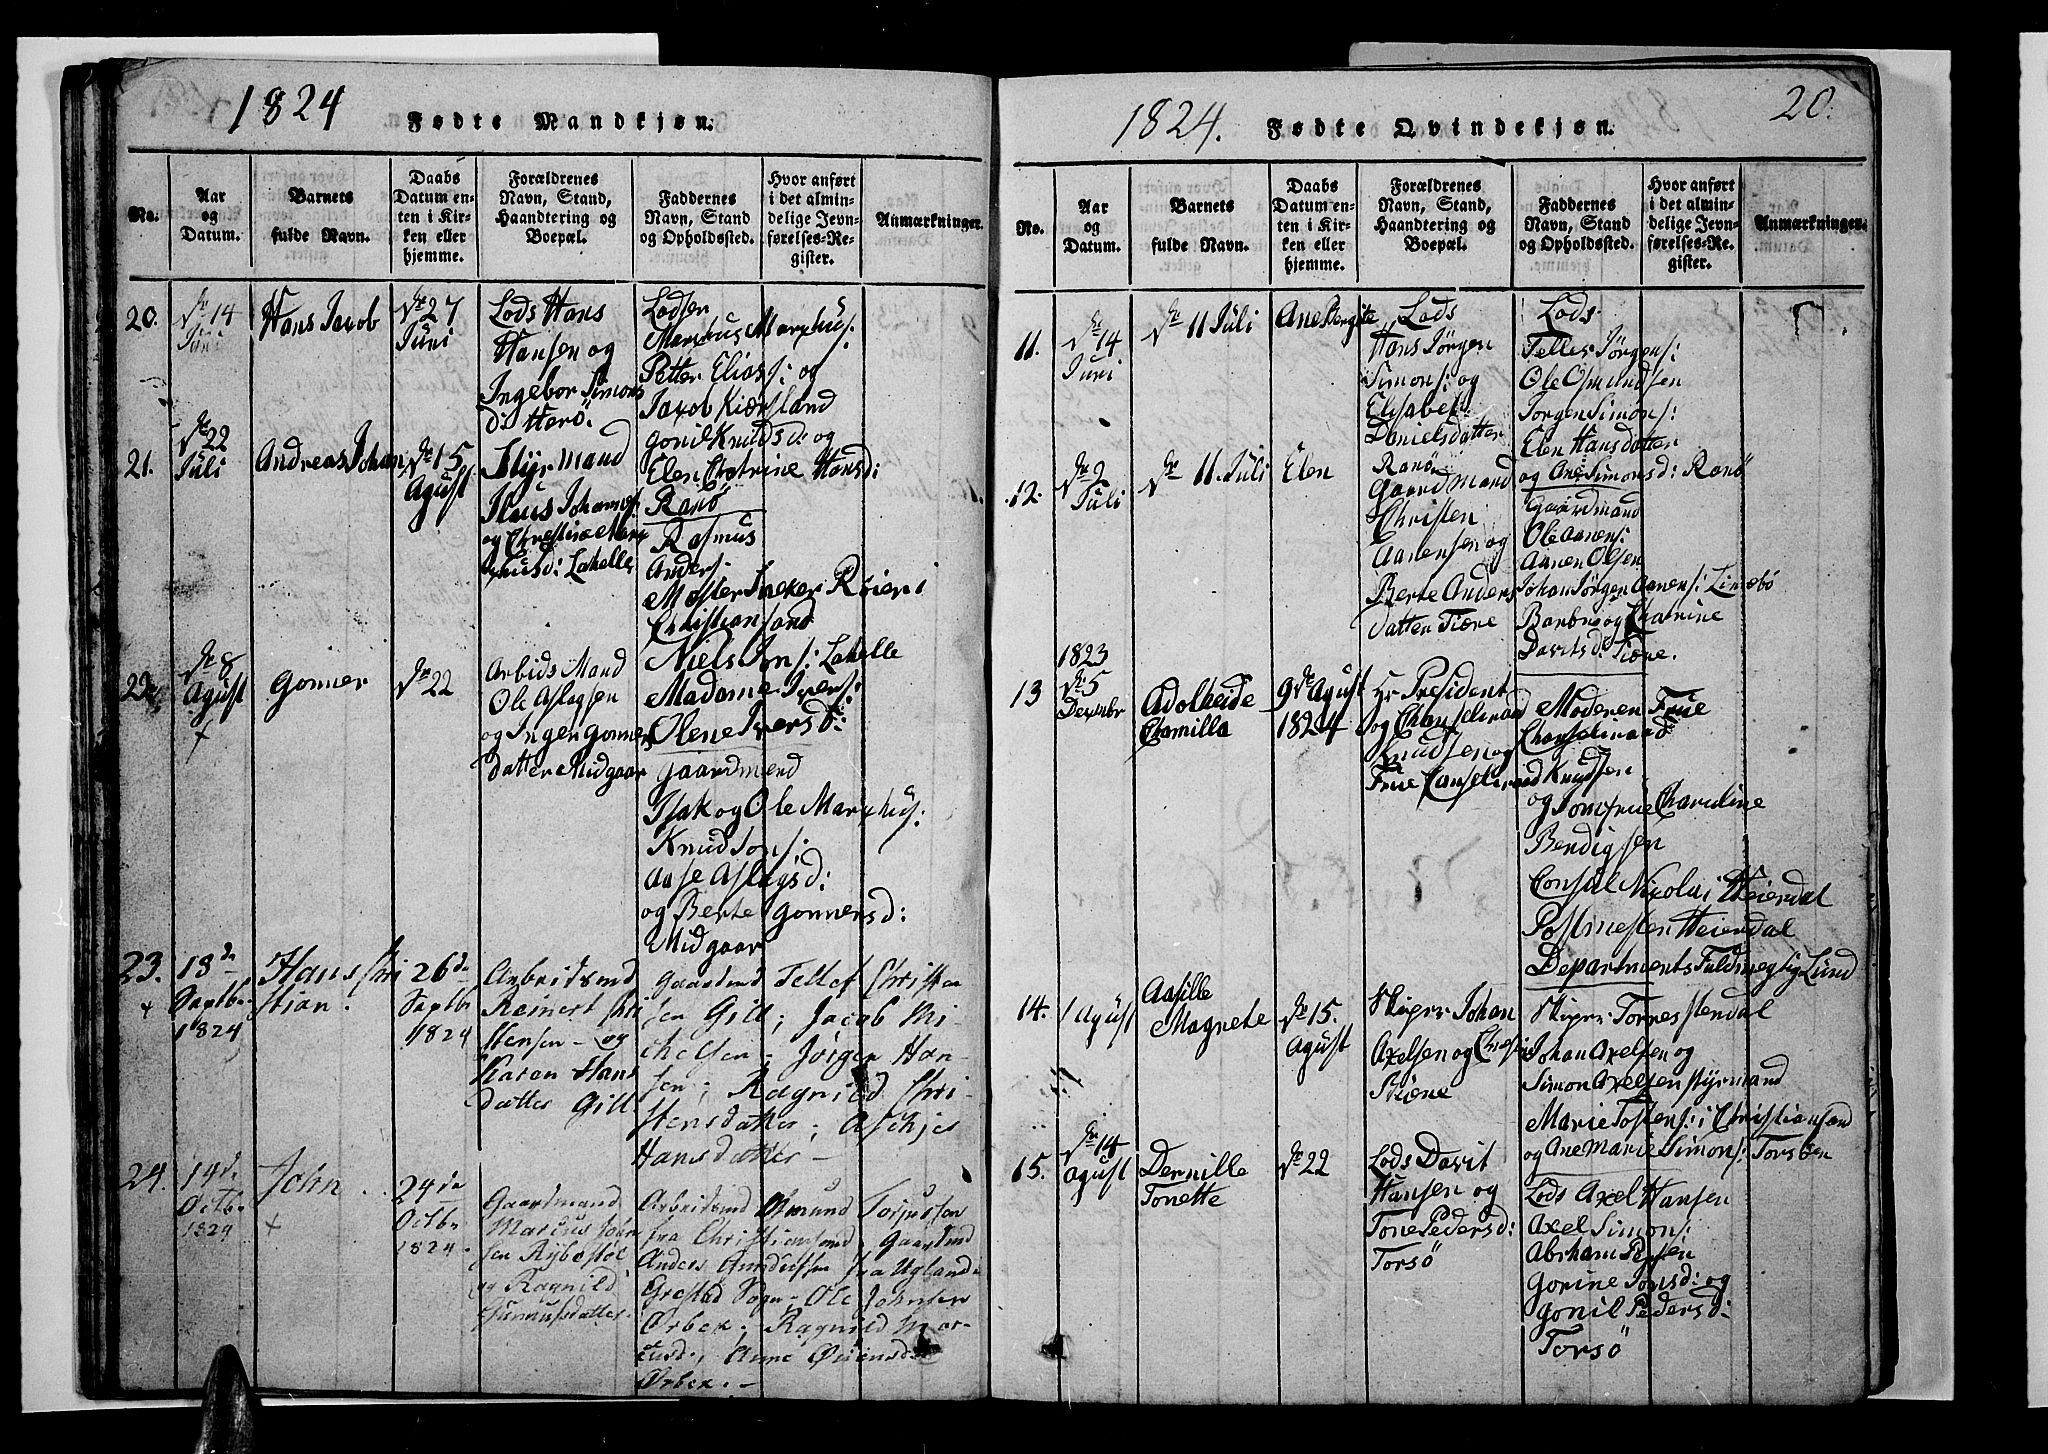 1824
Fødte Mandkjøn.
No.
Aar og Datum.
Barnets fulde Navn.
Daabs Datum enten i Kirken eller hjemme.
Forældrenes Navn, Stand, Haandtering og Boepæl.
Faddernes Navn, Stand og Opholdssted.
Hvor anført i det almindelige Jevnførelses-Register.
Anmærkninger.
20.
14
Juni
Hans Jacob
27
Juni
Lods Hans
Hansen og
Ingebor Simons
d: Herö.
Lodser
Marxhus Marxhus:
Petter Elias: og
Jaxob Kiærsland
gonil Knudsd: og
Elen Chatrine Hansd:
Ranö
21.
22
Juli
Andreas Johan
15
Agust
Styrmand
Johannes:
og Christine Marx
husd: Lahelle
Rasmus
Anders:
Mester
Christiansand
Niels Jons: Lahelle
Madame Ivers:
Olene Iversd:
22
8
Agust
+
Gonner
22
Arbids Mand
Ole Aslagsen
og Inger gonners
datter Midgaar
gaardmend
Isak og Ole Marxhus:
Knud Jons:
Aase Aslagsd:
og Berte gonnersd:
Midgaar
23.
+
18de
Septbr
1824
Hans Chri
stian.
26de
Septbr
1824
Arbeidsmd
Reinert Chri
stensen og
Karen Hans
datter Gill
Gaardmd Tellef Christen
sen Gill; Jacob Mi
chelsen; Jörgen Han-
sen; Ragnild Chri-
stensdatter; Aschjer
Hansdatter -
24.
14de
Octbr
1824
John
+
24de
Octbr
1824.
Gaardmand
Marcus John
sen Rybestöl
og Ragnild
Gunnufsdatter
Arbeidsmd Osmund Torjussen
fra Christiansand; Gaardmd
Anders fra Ugland i
Grestad Sogn - Ole Johnsen
Örbek; Ragnild Mar-
cusd:; Anne
Örbek. -
1824.
Fødte Qvindekjøn.
20.
No.
Aar og Datum.
Barnets fulde Navn.
Daabs Datum enten i Kirken eller hjemme.
Forældrenes Navn, Stand, Haandtering og Boepæl.
Faddernes Navn, Stand og Opholdssted.
Hvor anført i det almindelige Jevnførelses-Register.
Anmærkninger.
11.
14
Juni
11 Juli
Ane Bergite
Lods
Hans Jörgen
Simons: og
Elisabet
Danielsdatter
Ranö
Lods
Telles Jörgens:
Ole Osmundsen
Jörgen Simons:
Elen Hansdatter
og Ane Simonsd: Ranö
12.
2
Juli
11. Juli
Elen
Gaardmand
Christen
Aanensen og
Berte Anders
datter Tiære
Gaardmand
Ole Aanens:
Aanen Olsen
Johan Jörgen Aanens:
Barbro og Chatrine
Davitsd: Tiære.
13
1823
5
Decmbr
Adolheide
Chamilla
9de Agust
1824
Hr President
og Chanseliraad
Knudsen og
Frue Canseliraad
Moderen Frue
Chanseliraad
Knudsen
og Jomfrue Charoline
Bendigsen
Consul Nicolai Heierdal
Postmester Heierdal
Departments Fuldmegtig Lund
14.
1 Agust
Aasille
Magnete
15.
Agust
Skiper Johan
Axelsen og
Skiper Torres Stendal
Johan Axelsen og
Simon Axelsen styrmand
Marie Tostens: i Christiansand
og Ane Marie Simons: Torsöen
15.
14
Agust
Dernille
Tonette
22
Lods Davit
Hansen og
Tone Pedersd:
Torsö
Lods Axel Hansen
Axel Simons:
Abrham
Gorine Jonsd: og
gonil Pedersd:
Torsö